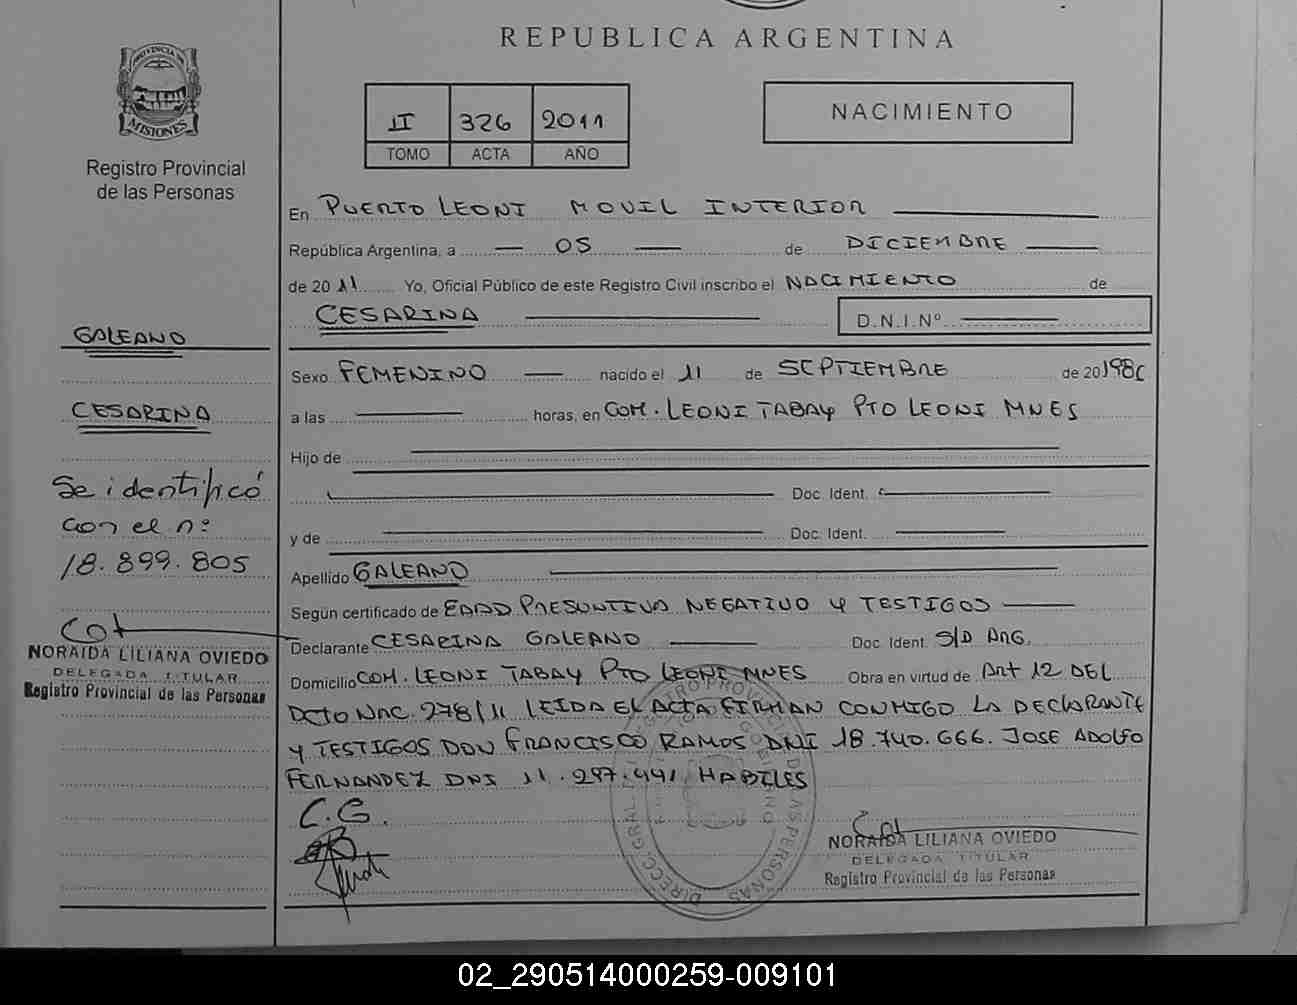 REPUBLICA ARGENTINA
PROVINCIA DE
MISIONES
Registro Provincial
de las Personas
II 326 2011
TOMO ACTA AÑO
NACIMIENTO
En PUERTO LEONI MOVIL INTERIOR
República Argentina, a 05 de DICIEMBRE
de 2011 Yo, Oficial Público de este Registro Civil inscribo el NACIMIENTO de
CESARINA D.N.I.Nº
Sexo FEMENINO nacido el 11 de SEPTIEMBRE de 20 198
a las horas, en COM. LEONI TABAY PTO LEONI MNES
Hijo de
Doc. Ident.
y de Doc. Ident.
Apellido GALEANO
Según certificado de EDAD PRESUNTIVA NEGATIVO Y TESTIGOS
Declarante CESARINA GALEANO Doc. Ident. S/D ARG.
Domicilio COM. LEONI TABAY PTO LEONI MNES Obra en virtud de Art 12 DEL
DCTO NAC. 278/11 LEIDA EL ACTA FIRMAN CONMIGO LA DECLARANTE
Y TESTIGOS DON FRANCISCO RAMOS DNI 18.740.666. JOSE ADOLFO
FERNANDEZ DNI 11.297.441 HABILES
C.G.
NORAIDA LILIANA OVIEDO
DELEGADA TITULAR
Registro Provincial de las Personas
GALEANO
CESARINA
Se identificó
con el nº
18.899.805
NORAIDA LILIANA OVIEDO
DELEGADA TITULAR
Registro Provincial de las Personas
DIRECC. GRAL. DEL REGISTRO PROVINCIAL DE LAS PERSONAS
02_290514000259-009101